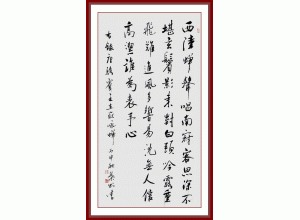 西陸蟬聲唱南冠客思深不
堪玄鬢影來對白頭吟露重
飛難進風多響易沉無人信
高潔誰為表予心
右錄唐駱賓王在獄詠蟬